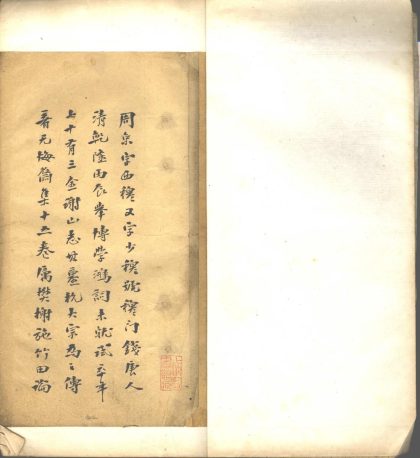 周京字西穆又字少穆號穆門錢唐人
清乾隆丙辰舉博學鴻詞未就試卒年
七十有三全謝山志其墓杭大宗為之傳
著无悔齋集十五卷厲樊榭施竹田